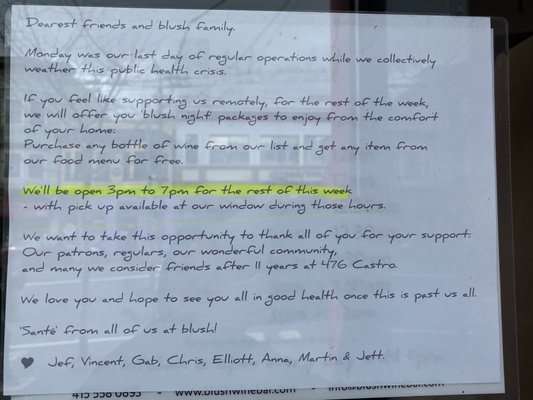 Dearest friends and blush family.
Monday was our last day of regular operations while we collectively
weather this public health crisis.
If you feel like supporting us remotely, for the rest of the week,
we will offer you 'blush night' packages to enjoy from the comfort
of your home:
Purchase any bottle of wine from our list and get any item from
our food menu for free.
We'll be open 3pm to 7pm for the rest of this week
- with pick up available at our window during those hours.
We want to take this opportunity to thank all of you for your support.
Our patrons, regulars, our wonderful community,
and many we consider friends after 11 years at 476 Castro.
We love you and hope to see you all in good health once this is past us all.
'Santé' from all of us at blush!
♥ Jef, Vincent, Gab, Chris, Elliott, Anna, Martin & Jett.
415 558 0893 - www.blushwinebar.com - info@blushwinebar.com